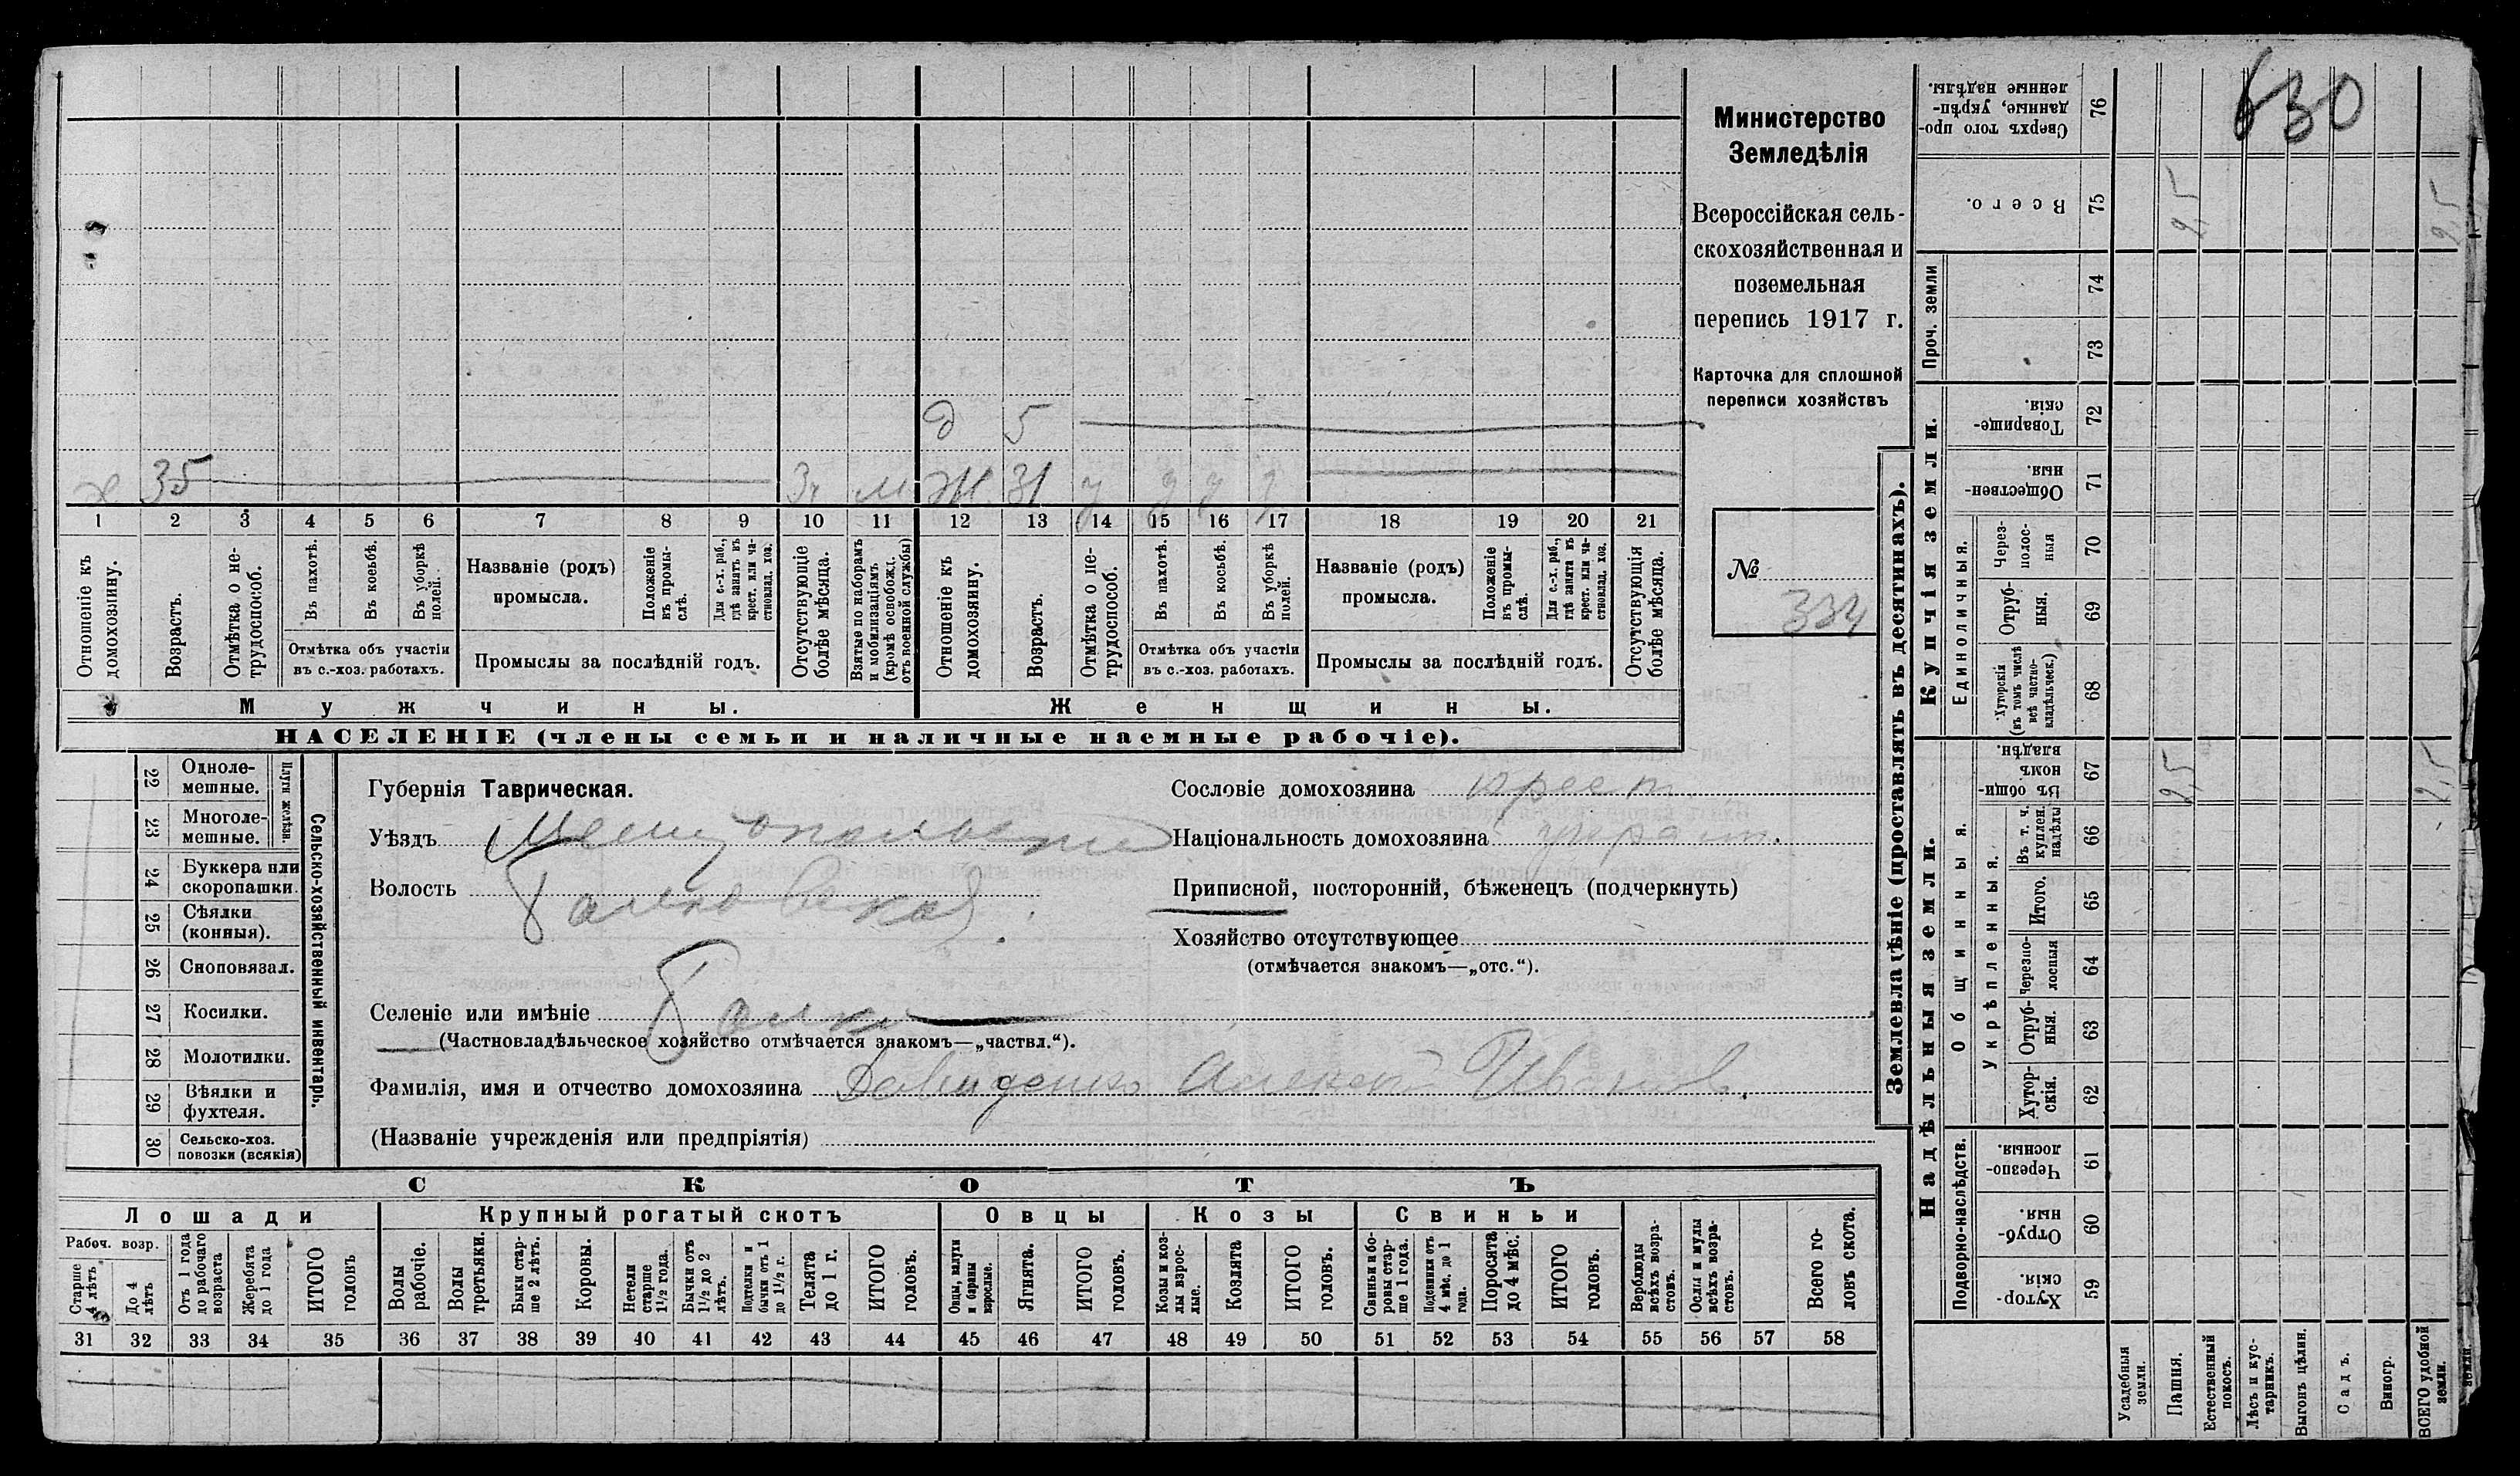 630
Министерство
Земледѣлія
Всероссійская сель-
скохозяйственная и
поземельная
перепись 1917 г.
Карточка для сплошной
переписи хозяйствъ
№ 334
д 5
х 35 м Ж 31 у
1 2 3 4 5 6 7 8 9 10 11 12 13 14 15 16 17 18 19 20 21
Отношеніе къ домохозяину.
Возрастъ.
Отмѣтка о не-трудоспособ.
Въ пахотѣ.
Въ косьбѣ.
Въ уборкѣ полей.
Отмѣтка объ участіи
въ с.-хоз. работахъ.
Названіе (родъ)
промысла.
Положеніе въ промы-слѣ.
Для с.-х. раб., гдѣ занятъ въ крест. или ча-стновлад. хоз.
Промыслы за послѣдній годъ.
Отсутствующіе болѣе мѣсяца.
Взятые по наборамъ и мобилизаціямъ (кромѣ освобожд. отъ военной службы)
Отношеніе къ домохозяину.
Возрастъ.
Отмѣтка о не-трудоспособ.
Въ пахотѣ.
Въ косьбѣ.
Въ уборкѣ полей.
Отмѣтка объ участіи
въ с.-хоз. работахъ.
Названіе (родъ)
промысла.
Положеніе въ промы-слѣ.
Для с.-х. раб., гдѣ занята въ крест. или ча-стновлад. хоз.
Промыслы за послѣдній годъ.
Отсутствующія болѣе мѣсяца.
Мужчины.
Женщины.
НАСЕЛЕНІЕ (члены семьи и наличные наемные рабочіе).
22 Одноле-мешные.
23 Многоле-мешные.
Плуги желѣзн.
24 Буккера или скоропашки.
25 Сѣялки (конныя).
26 Сноповязал.
27 Косилки.
28 Молотилки.
29 Вѣялки и фухтеля.
30 Сельско-хоз. повозки (всякія)
Сельско-хозяйственный инвентарь.
Губернія Таврическая.
Уѣздъ Мелитопольскій
Волость Балковская
Селеніе или имѣніе Балки
(Частновладѣльческое хозяйство отмѣчается знакомъ—„частвл.“).
Фамилія, имя и отчество домохозяина Давиденко Алексей Иванов.
(Названіе учрежденія или предпріятія)
Сословіе домохозяина крест
Національность домохозяина украин.
Приписной, посторонній, бѣженецъ (подчеркнуть)
Хозяйство отсутствующее
(отмѣчается знакомъ—„отс.“).
СКОТЪ
Лошади
Рабоч. возр.
Старше 4 лѣтъ
До 4 лѣтъ
Отъ 1 года до рабочаго возраста
Жеребята до 1 года
ИТОГО головъ
Крупный рогатый скотъ
Волы рабочіе.
Волы третьяки.
Быки стар-ше 2 лѣтъ.
Коровы.
Нетели старше 1½ года.
Бычки отъ 1½ до 2 лѣтъ.
Подтелки и бычки отъ 1 до 1½ г.
Телята до 1 г.
ИТОГО головъ.
Овцы
Овцы, валухи и бараны взрослые.
Ягнята.
ИТОГО головъ.
Козы
Козы и коз-лы взрос-лые.
Козлята
ИТОГО головъ.
Свиньи
Свиньи и бо-ровы стар-ше 1 года.
Подсвинки отъ 4 мѣс. до 1 года.
Поросята до 4 мѣс.
ИТОГО головъ.
Верблюды всѣхъ возра-стовъ.
Ослы и мулы всѣхъ возра-стовъ.
Всего го-ловъ скота.
31 32 33 34 35 36 37 38 39 40 41 42 43 44 45 46 47 48 49 50 51 52 53 54 55 56 57 58
Землевладѣніе (проставлять въ десятинахъ).
Купчія земли.
Надѣльныя земли.
Сверхъ того про-данные, укрѣп-ленные надѣлы. 76
Всего. 75 2,5 2,5
Проч. земли
74
73
Товарище-скія. 72
Обществен-ныя. 71
Единоличныя.
Через-полос-ныя 70
Отруб-ныя. 69
Хуторскія (въ томъ числѣ всѣ частно-владѣльческ.) 68
Общинныя.
Въ общи-номъ владѣн. 67 2,5 2,5
Укрѣпленныя.
Въ т. ч. куплен. надѣлы 66
Итого. 65
Черезпо-лосныя 64
Отруб-ныя. 63
Хутор-скія. 62
Подворно-наслѣдств.
Черезпо-лосныя. 61
Отруб-ныя. 60
Хутор-скія. 59
Усадебныя земли.
Пашня.
Естественный покосъ.
Лѣсъ и кус-тарникъ.
Выгонъ цѣлин.
Садъ.
Виногр.
ВСЕГО удобной земли.
земли.